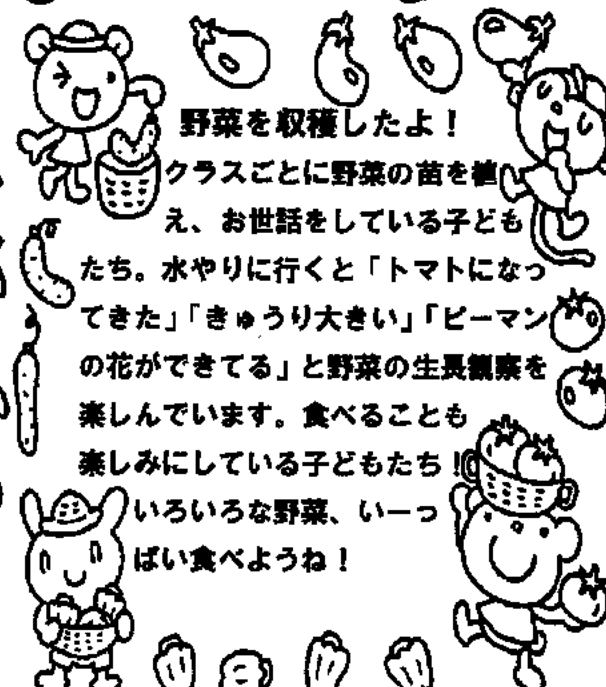 野菜を収穫したよ！
クラスごとに野菜の苗を植
え、お世話をしている子ども
たち。水やりに行くと「トマトになっ
てきた」「きゅうり大きい」「ピーマン
の花ができてる」と野菜の生長観察を
楽しんでいます。食べることも
楽しみにしている子どもたち！
いろいろな野菜、いーっ
ぱい食べようね！